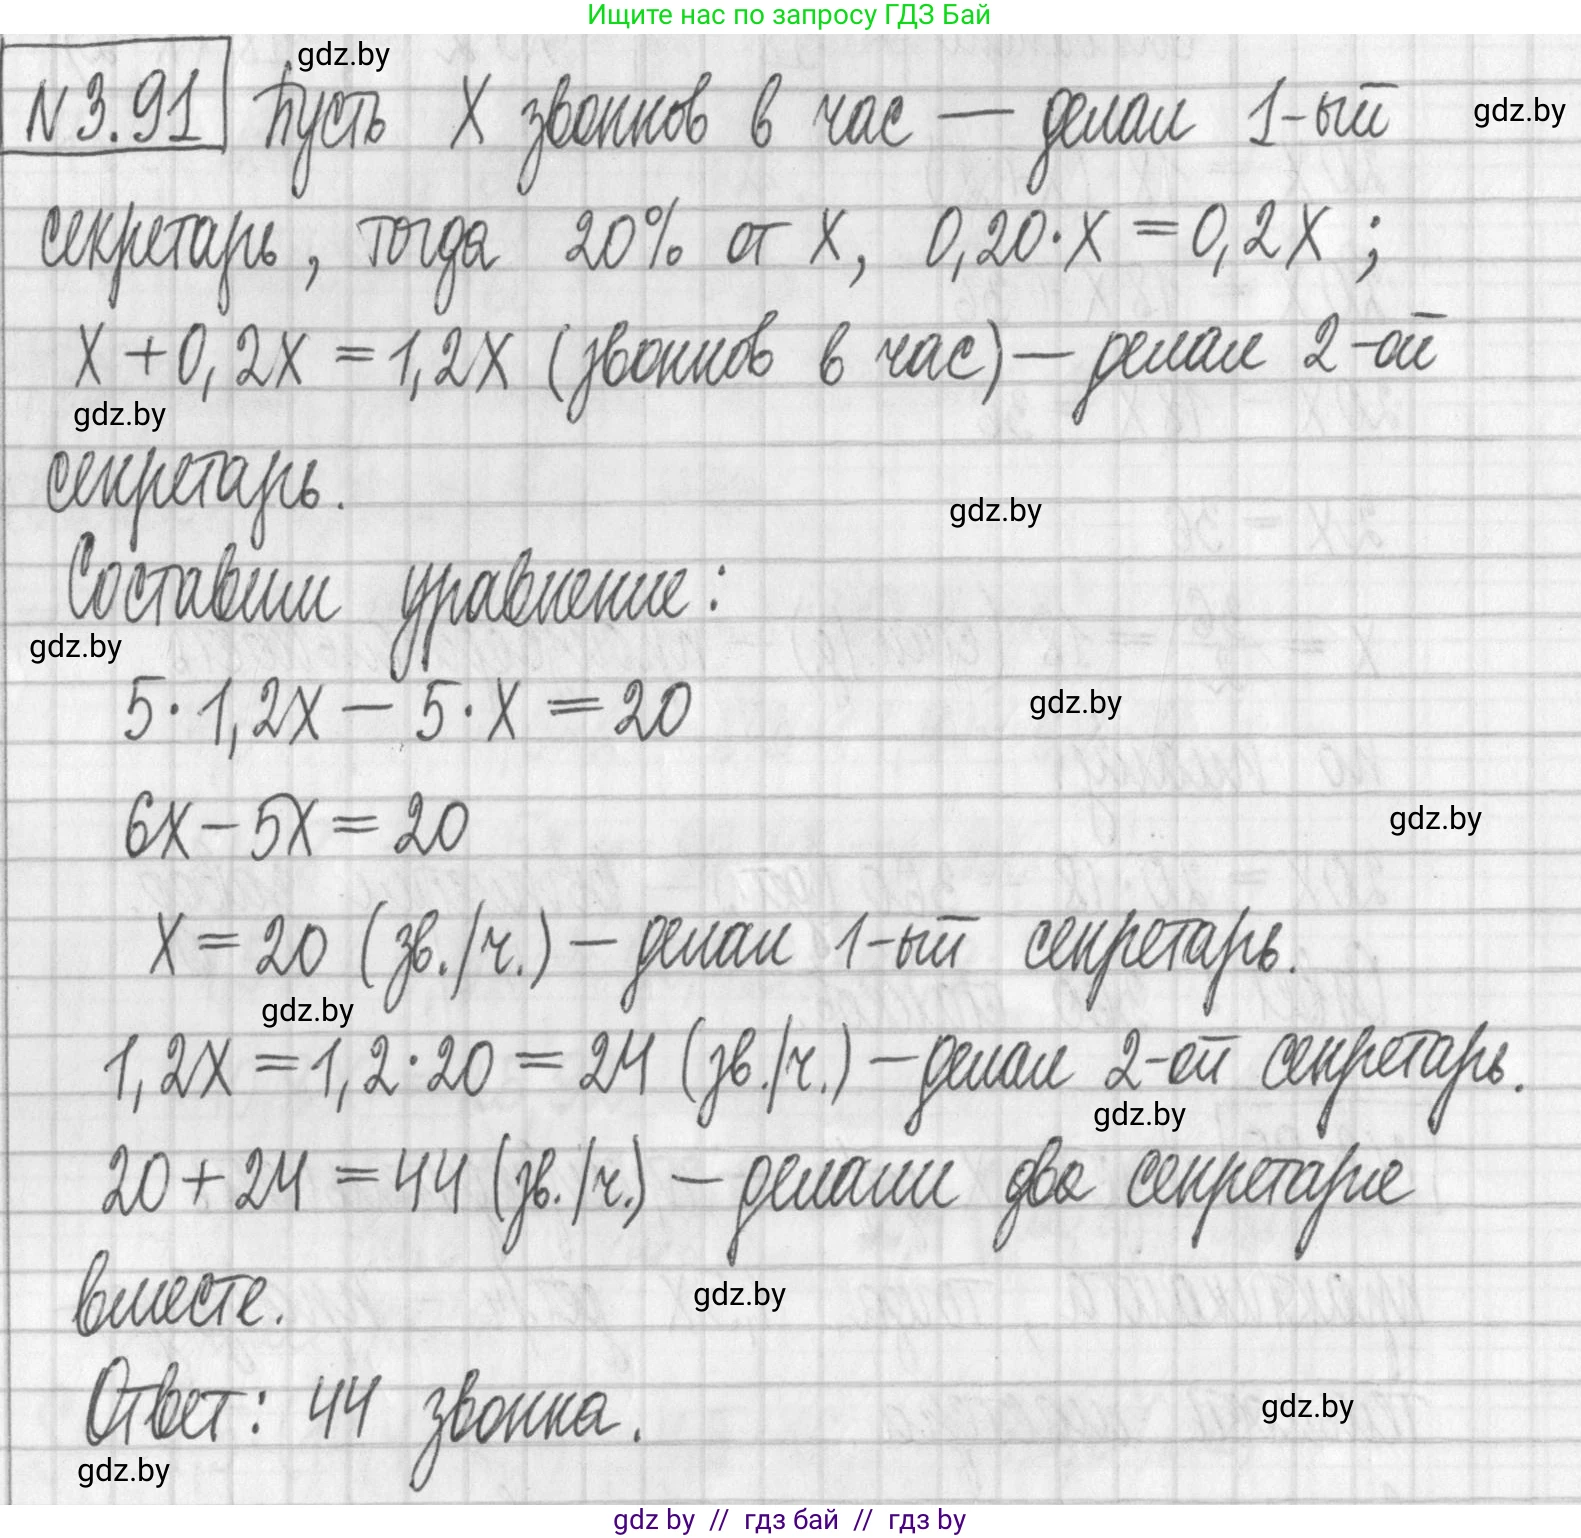 Ищите нас по запросу ГДЗ Бай
gdz.by
N 3.91 Пусть X звонков в час — делал 1-ый
gdz.by
секретарь, тогда 20% от X, 0,20·X = 0,2X ;
X + 0,2X = 1,2X (звонков в час) — делал 2-ой
gdz.by
секретарь.
gdz.by
Составим уравнение:
gdz.by
5·1,2X — 5·X = 20
gdz.by
6X – 5X = 20
gdz.by
X = 20 (зв./ч.) – делал 1-ый секретарь.
gdz.by
1,2X = 1,2·20 = 24 (зв./ч.) – делал 2-ой секретарь.
gdz.by
20 + 24 = 44 (зв./ч.) – делали два секретаря
вместе.
gdz.by
Ответ: 44 звонка.
gdz.by
gdz.by
gdz by // гдз бай // гдз by